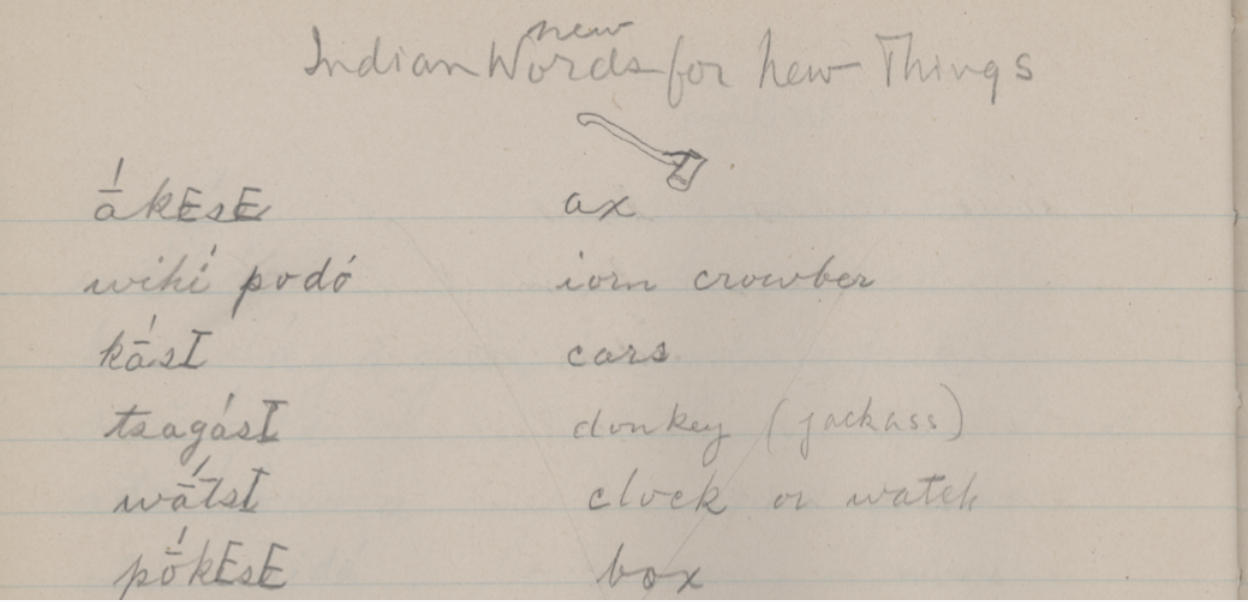 new
Indian Words for new Things
ā́kEsE ax
wihí podó iorn crowber
kā́sI cars
tsagásI donkey (jackass)
wā́tsI clock or watch
pṓkEsE box